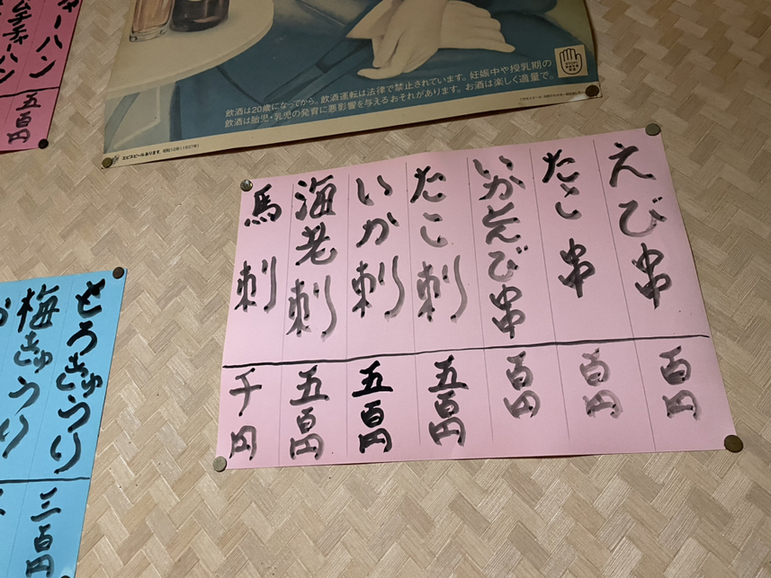 飲酒は20歳になってから。飲酒運転は法律で禁止されています。妊娠中や授乳期の
飲酒は胎児・乳児の発育に悪影響を与えるおそれがあります。お酒は楽しく適量で。
ヱビスビールあります。
えび串 百円
たこ串 百円
いかとんび串 百円
たこ刺 五百円
いか刺 五百円
海老刺 五百円
馬刺 千円
チャーハン
五百円
もろきゅうり 三百円
梅きゅうり